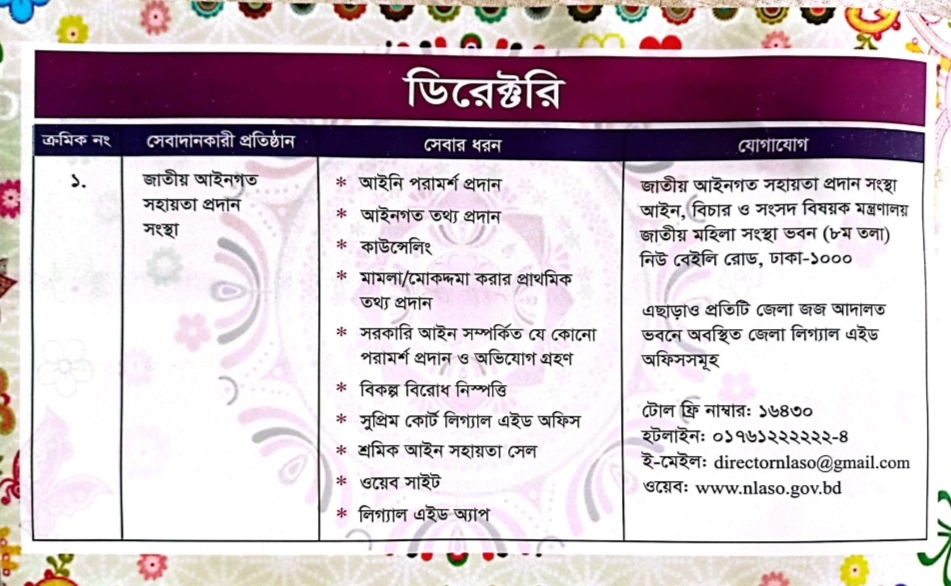 ডিরেক্টরি
ক্রমিক নং
সেবাদানকারী প্রতিষ্ঠান
সেবার ধরন
যোগাযোগ
১.
জাতীয় আইনগত
সহায়তা প্রদান
সংস্থা
* আইনি পরামর্শ প্রদান
* আইনগত তথ্য প্রদান
* কাউন্সেলিং
* মামলা/মোকদ্দমা করার প্রাথমিক
তথ্য প্রদান
* সরকারি আইন সম্পর্কিত যে কোনো
পরামর্শ প্রদান ও অভিযোগ গ্রহণ
* বিকল্প বিরোধ নিস্পত্তি
* সুপ্রিম কোর্ট লিগ্যাল এইড অফিস
* শ্রমিক আইন সহায়তা সেল
* ওয়েব সাইট
* লিগ্যাল এইড অ্যাপ
জাতীয় আইনগত সহায়তা প্রদান সংস্থা
আইন, বিচার ও সংসদ বিষয়ক মন্ত্রণালয়
জাতীয় মহিলা সংস্থা ভবন (৮ম তলা)
নিউ বেইলি রোড, ঢাকা-১০০০
এছাড়াও প্রতিটি জেলা জজ আদালত
ভবনে অবস্থিত জেলা লিগ্যাল এইড
অফিসসমূহ
টোল ফ্রি নাম্বার: ১৬৪৩০
হটলাইন: ০১৭৬১২২২২২২-৪
ই-মেইল: directornlaso@gmail.com
ওয়েব: www.nlaso.gov.bd